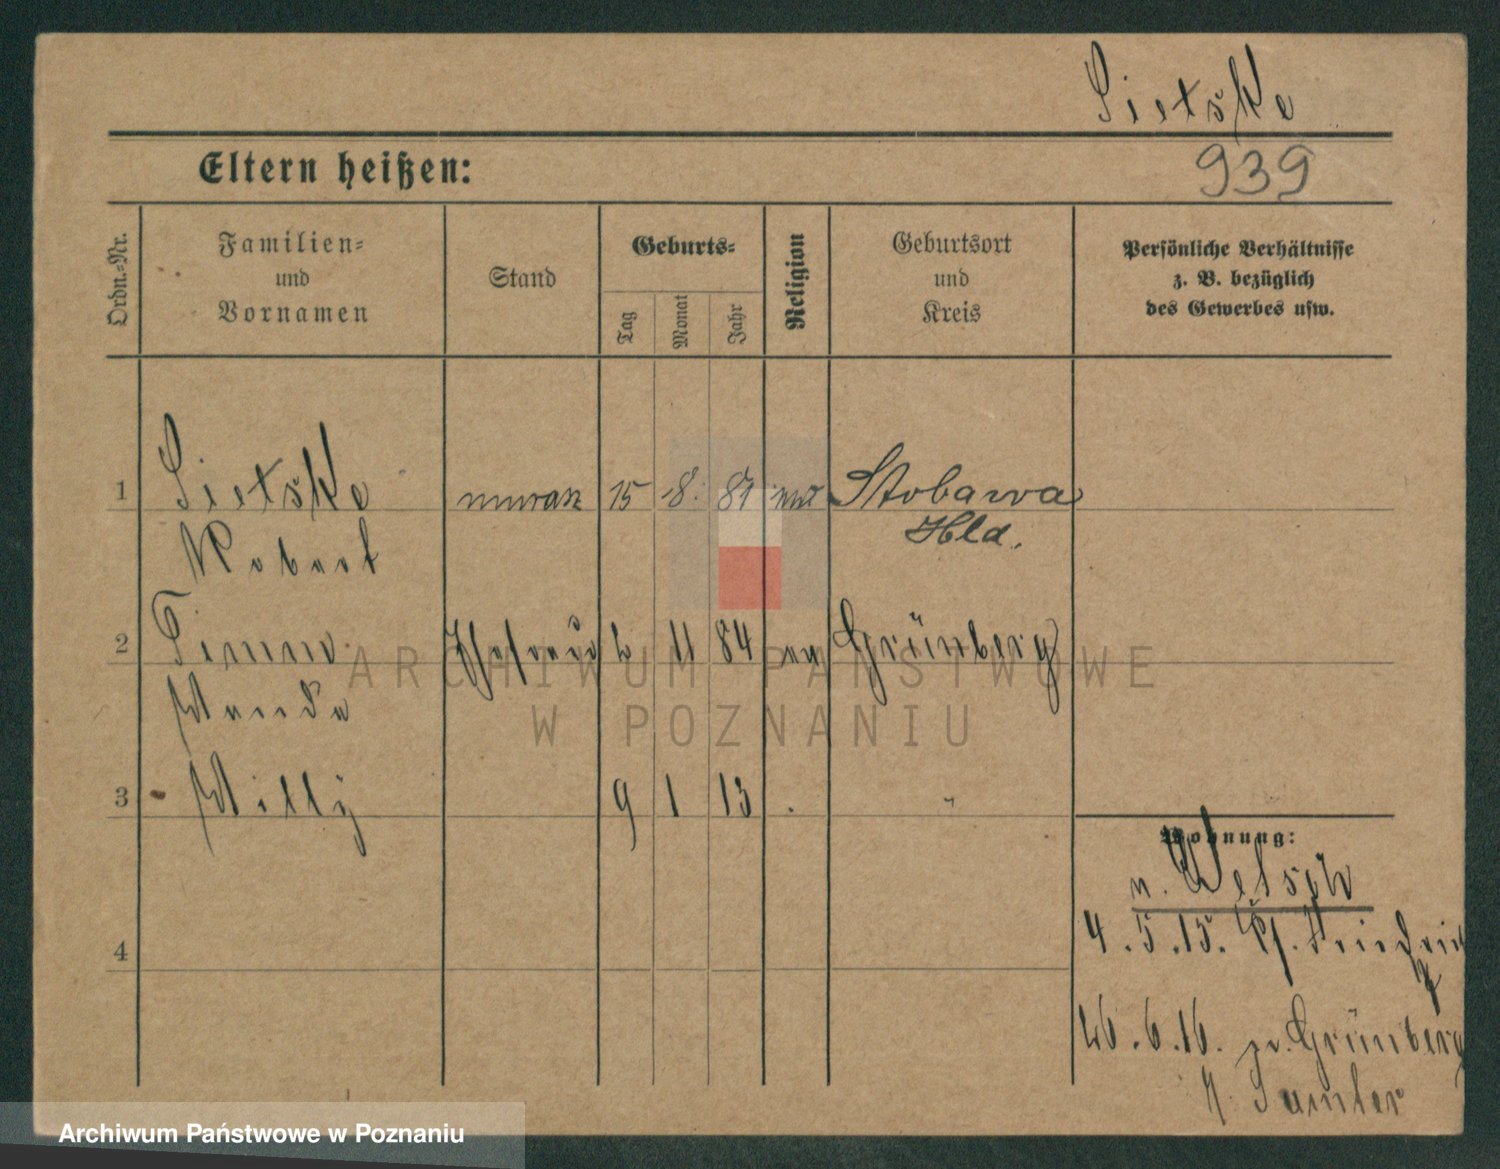 Sietske
Eltern heißen:
939
Ordn.-Nr.
Familien-
und
Vornamen
Stand
Geburts-
Tag
Monat
Jahr
Religion
Geburtsort
und
Kreis
Persönliche Verhältnisse
z. B. bezüglich
des Gewerbes usw.
1 Sietske 15 8. 81 Stobarva
Robert Hld.
2 Timm Ehefrau 2 11 84 ev Grünberg
Wanda
3 Willy 9 1 13 . "
Wohnung:
n. Welsch
4
4.5.15. Friedrich
26.6.16. Grünberg
K. Samter
ARCHIWUM PAŃSTWOWE
W POZNANIU
Archiwum Państwowe w Poznaniu